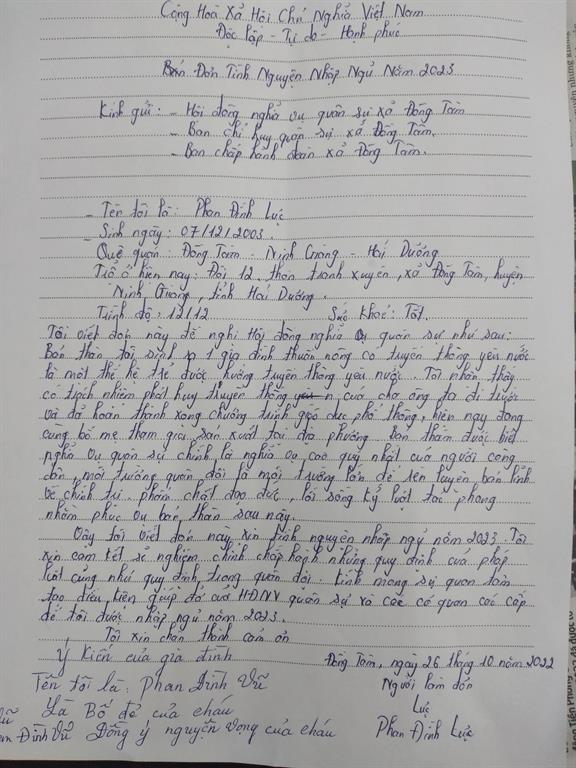 Cộng Hoà Xã Hội Chủ Nghĩa Việt Nam
Độc lập - Tự do - Hạnh phúc
Bản Đơn Tình Nguyện Nhập Ngũ Năm 2023
Kính gửi: - Hội đồng nghĩa vụ quân sự xã Đồng Tâm
- Ban chỉ huy quân sự xã Đồng Tâm.
- Ban chấp hành đoàn xã Đồng Tâm.
- Tên tôi là: Phan Đình Lực
- Sinh ngày: 07/12/2003.
Quê quán: Đồng Tâm - Ninh Giang - Hải Dương
Trỗ ở hiện nay: Đội 12, thôn tranh xuyên, xã Đồng Tâm, huyện
Ninh Giang, tỉnh Hải Dương.
Trình độ: 12/12 Sức khoẻ: Tốt.
Tôi viết đơn này đề nghị Hội đồng nghĩa vụ quân sự như sau:
Bản thân tôi sinh ra 1 gia đình thuần nông có truyền thống yêu nước
là một thế hệ trẻ được hưởng truyền thống yêu nước. Tôi nhận thấy
có trách nhiệm phát huy truyền thống của cha ông ta đi trước
và đã hoàn thành xong chương trình giáo dục phổ thông, hiện nay đang
cùng bố mẹ tham gia sản xuất tại địa phương. Bản thân được biết
nghĩa vụ quân sự chính là nghĩa vụ cao quý nhất của người công
dân, môi trường quân đội là môi trường lớn để rèn luyện bản lĩnh
về chính trị, phẩm chất đạo đức, lối sống kỷ luật tác phong
nhằm phục vụ bản thân sau này.
Vậy tôi viết đơn này xin tình nguyện nhập ngũ năm 2023. Tôi
xin cam kết sẽ nghiệm chỉnh chấp hành những quy định của pháp
luật cũng như quy định trong quân đội. Kính mong sự quan tâm
tạo điều kiện giúp đỡ của HĐNV quân sự và các cơ quan các cấp
để tôi được nhập ngũ năm 2023.
Tôi xin chân thành cảm ơn
Ý kiến của gia đình Đồng Tâm, ngày 26 tháng 10 năm 2022
Tên tôi là: Phan Đình Vũ Người làm đơn
Là Bố đẻ của cháu Lực
Đình Vũ Đồng ý nguyện vọng của cháu Phan Đình Lực